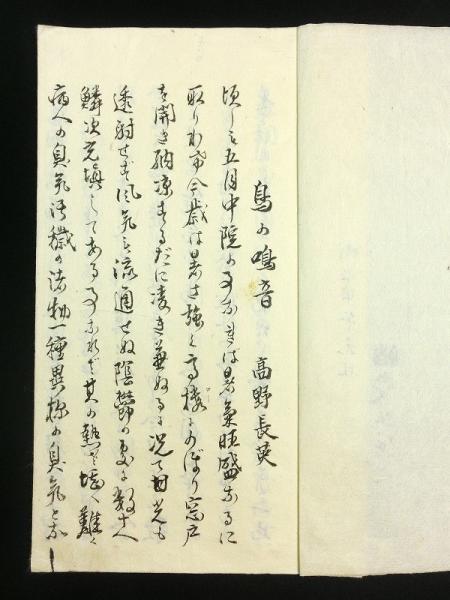 鳥の鳴音　高野長英
頃しも五月中院の事なれば暑氣旺盛なるに
取りわけ今歳は暑さ強く高楼にのぼり窓戸
を開き納凉するだに凌き兼ぬるに况て日光も
透射せず風氣も流通せぬ陰欝の処に数十人
鱗次充填してある事なれば其の熱さ堪へ難く
病人の臭氣汚穢の諸物一種異様の臭氣となし